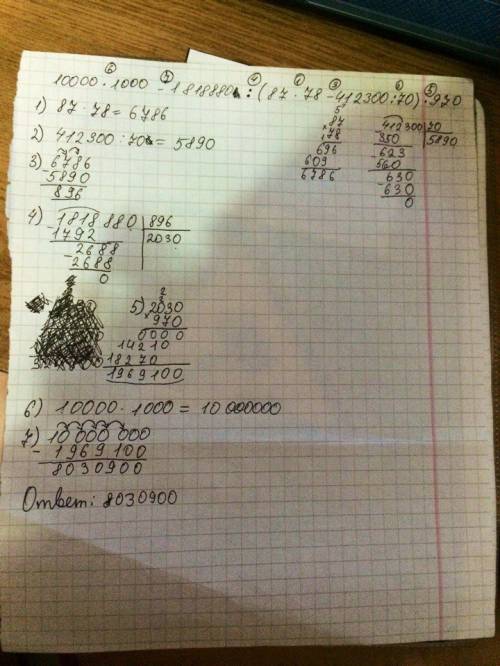 ⑥ ⑦ ④ ① ③ ② ⑤
10000 · 1000 - 1818880 : (87 · 78 - 412300 : 70) · 970
1) 87 · 78 = 6786
5
87
×78
696
609
6786
- 412300 | 70
350 | 5890
- 623
560
- 630
- 630
0
2) 412300 : 70 = 5890
3) 6786
- 5890
896
4) - 1818880 | 896
1792 | 2030
- 2688
2688
0
5) 2030
× 970
0000
14210
18270
1969100
6) 10000 · 1000 = 10 000000
7) 10 000 000
- 1969 100
8030900
Ответ: 8030900